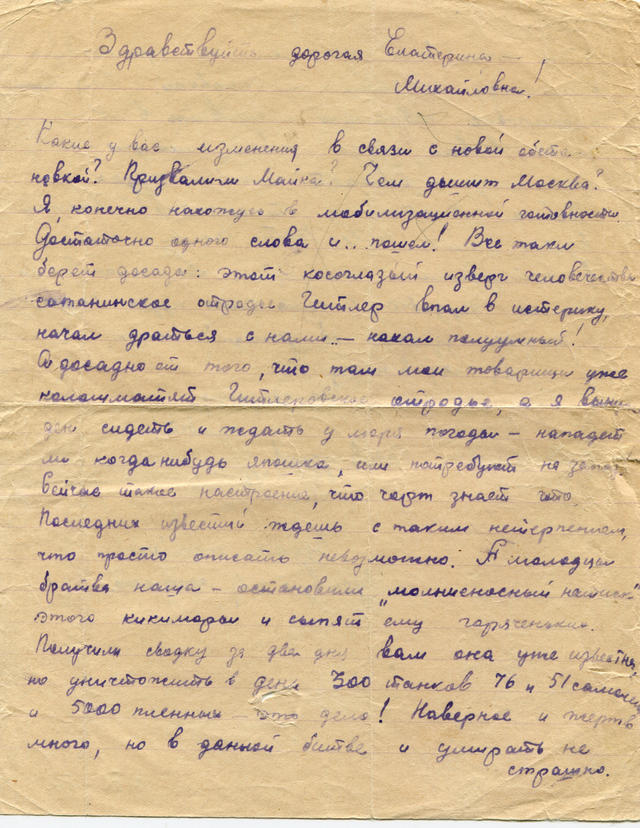 Здравствуйте дорогая Екатерина
Михайловна!
Какие у вас изменения в связи с новой обста-
новкой? Призвали ли Майна? Чем дышит Москва?
Я, конечно нахожусь в мобилизационной готовности.
Достаточно одного слова и... пошел! Все таки
берет досада: этот косоглазый изверг человечества
сатанинское отродье Гитлер впал в истерику,
начал драться с нами – нахал полуумный!
А досадно от того, что там мои товарищи уже
колошматят Гитлеровское отродье, а я вынуж
ден сидеть и ждать у моря погоды – нападет
ли когда нибудь япошка, или потребуют на запад
Сейчас такое настроение, что чорт знает что.
Последних известий ждешь с таким нетерпением,
что просто описать невозможно. А молодцы
братва наша – остановили "молниеносный натиск"
этого кикиморы и сыпят ему горяченьких.
Получили сводку за два дня, вам она уже известна,
но уничтожить в день 300 танков 76 и 51 самолет
и 5000 пленных – это дело! Наверное и жертв
много, но в данной битве и умирать не
страшно.